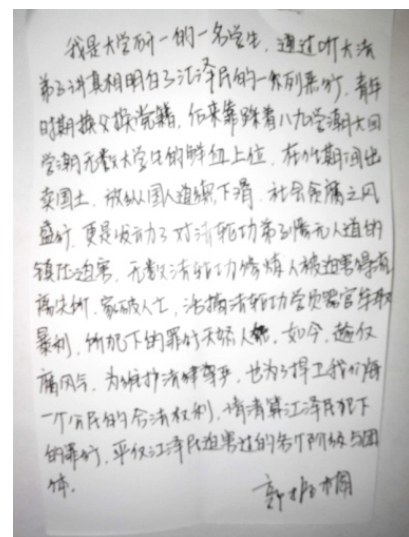 我是大学研一的一名学生，通过听大法
弟子讲真相明白了江泽民的一系列恶行，青年
时期换父换党籍，后来靠踩着八九学潮大四
学潮无数大学生的鲜血上位，在位期间出
卖国土，放纵国人道德下滑，社会贪腐之风
盛行，更是发动了对法轮功弟子惨无人道的
镇压迫害，无数法轮功修炼人被迫害得流
离失所，家破人亡，活摘法轮功学员器官牟取
暴利，所犯下的罪行天怒人怨，如今，趁反
腐风气，为维护法律尊严，也为了捍卫我们每
一个公民的合法权利，请清算江泽民犯下
的罪行，平反江泽民迫害过的各个阶级与团
体。